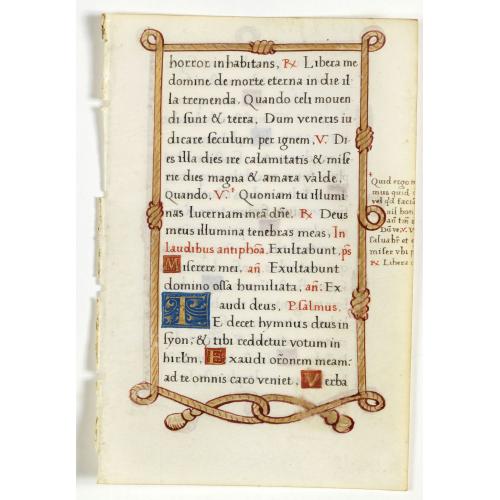 horror inhabitans, ℟ Libera me
domine de morte eterna in die il-
la tremenda. Quando celi mouen
di sunt & terra, Dum veneris iu-
dicare seculum per ignem, V. Di
es illa dies ire calamitatis & mise
rie dies magna & amara valde.
Quando, V. Quoniam tu illumi
nas lucernam meā dn̄e. ℟ Deus
meus illumina tenebras meas, In
laudibus antiphōa. Exultabunt, ps
Miserere mei, añ. Exultabunt
domino ossa humiliata, añ. Ex
audi deus, Psalmus.
TE decet hymnus deus in
syon, & tibi reddetur votum in
hirl̄m. Exaudi orōnem meam:
ad te omnis caro veniet, Verba
Quid ergo
mus quid
vel
nisi
V.
saluabit et
miser vbi
℟ Libera